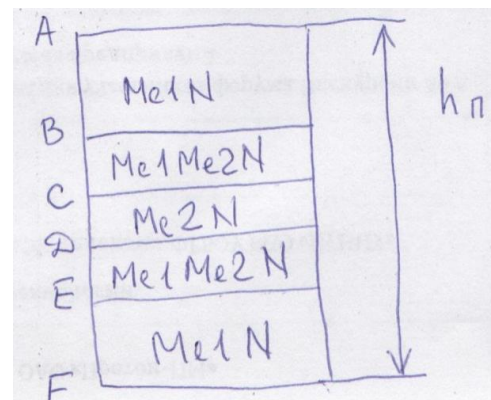 A
Me1N
hп
B
Me1Me2N
C
Me2N
Д
Me1Me2N
E
Me1N
F